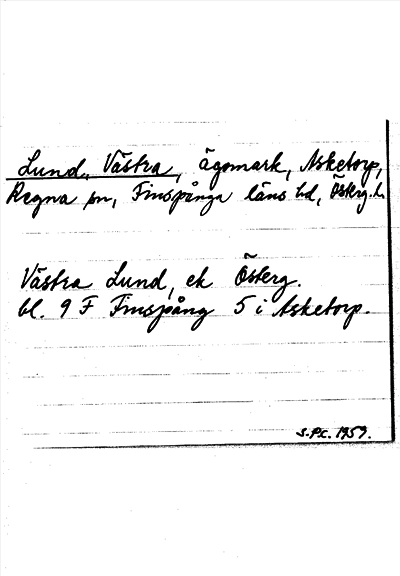 Lund, Västra, ägomark, Asketorp,
Regna sn, Finspånga läns hd, Österg. l.
Västra Lund, ek Österg.
bl. 9 F Finspång 5 i Asketorp.
1959.